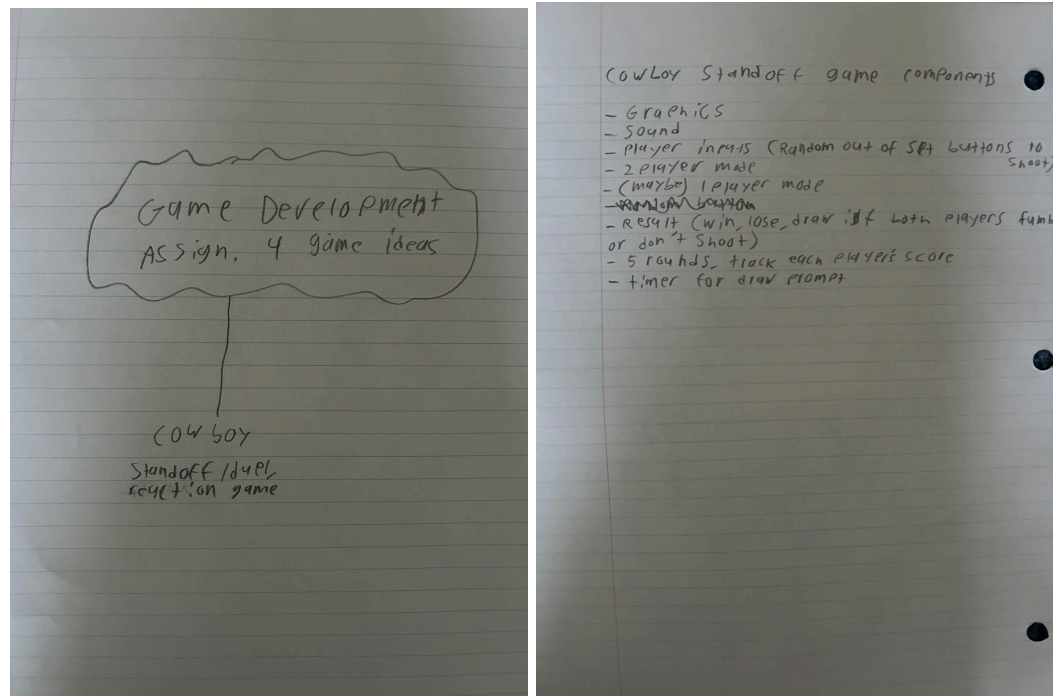 Game Development
Assign. 4 game ideas
Cowboy
Standoff/duel,
reaction game
Cowboy Standoff game components
- Graphics
- Sound
- Player inputs (Random out of set buttons to
shoot)
- 2 player mode
- (maybe) 1 player mode
- Result (win, lose, draw if both players fumb
or don't shoot)
- 5 rounds, track each player's score
- timer for draw prompt